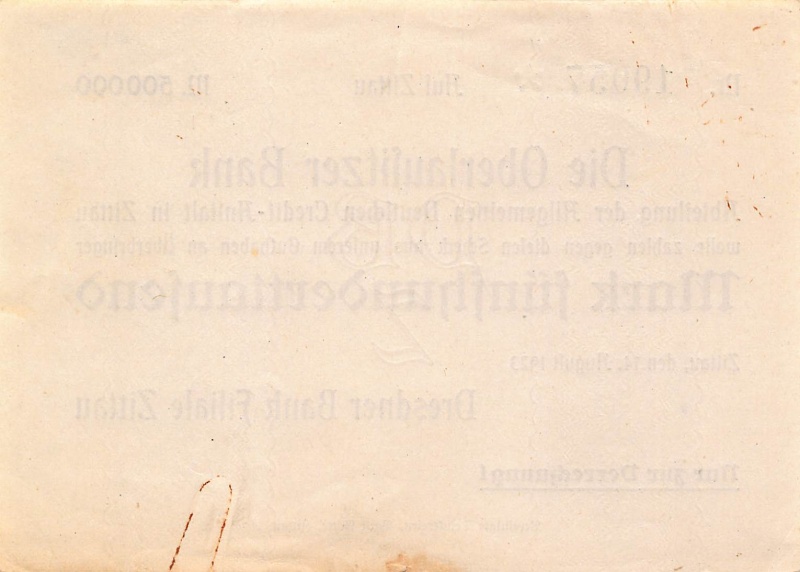 Nr. 19057 Auf Zittau M. 500000
Die Oberlausitzer Bank
Abteilung der Allgemeinen Deutschen Credit-Anstalt in Zittau
wolle zahlen gegen diesen Scheck aus unserem Guthaben an Überbringer
Mark fünfhunderttausend
Zittau, den 14. August 1923
Dresdner Bank Filiale Zittau
Nur zur Verrechnung!